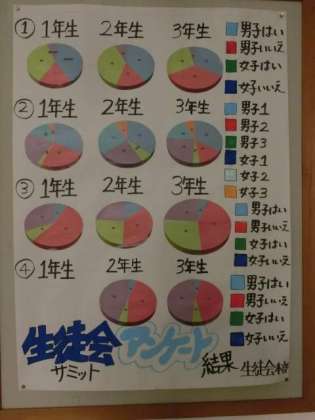 ① 1年生 2年生 3年生
男子はい
男子いいえ
女子はい
女子いいえ
② 1年生 2年生 3年生
男子1
男子2
男子3
女子1
女子2
女子3
③ 1年生 2年生 3年生
男子はい
男子いいえ
女子はい
女子いいえ
④ 1年生 2年生 3年生
男子はい
男子いいえ
女子はい
女子いいえ
生徒会アンケート
サミット 結果 生徒会本部